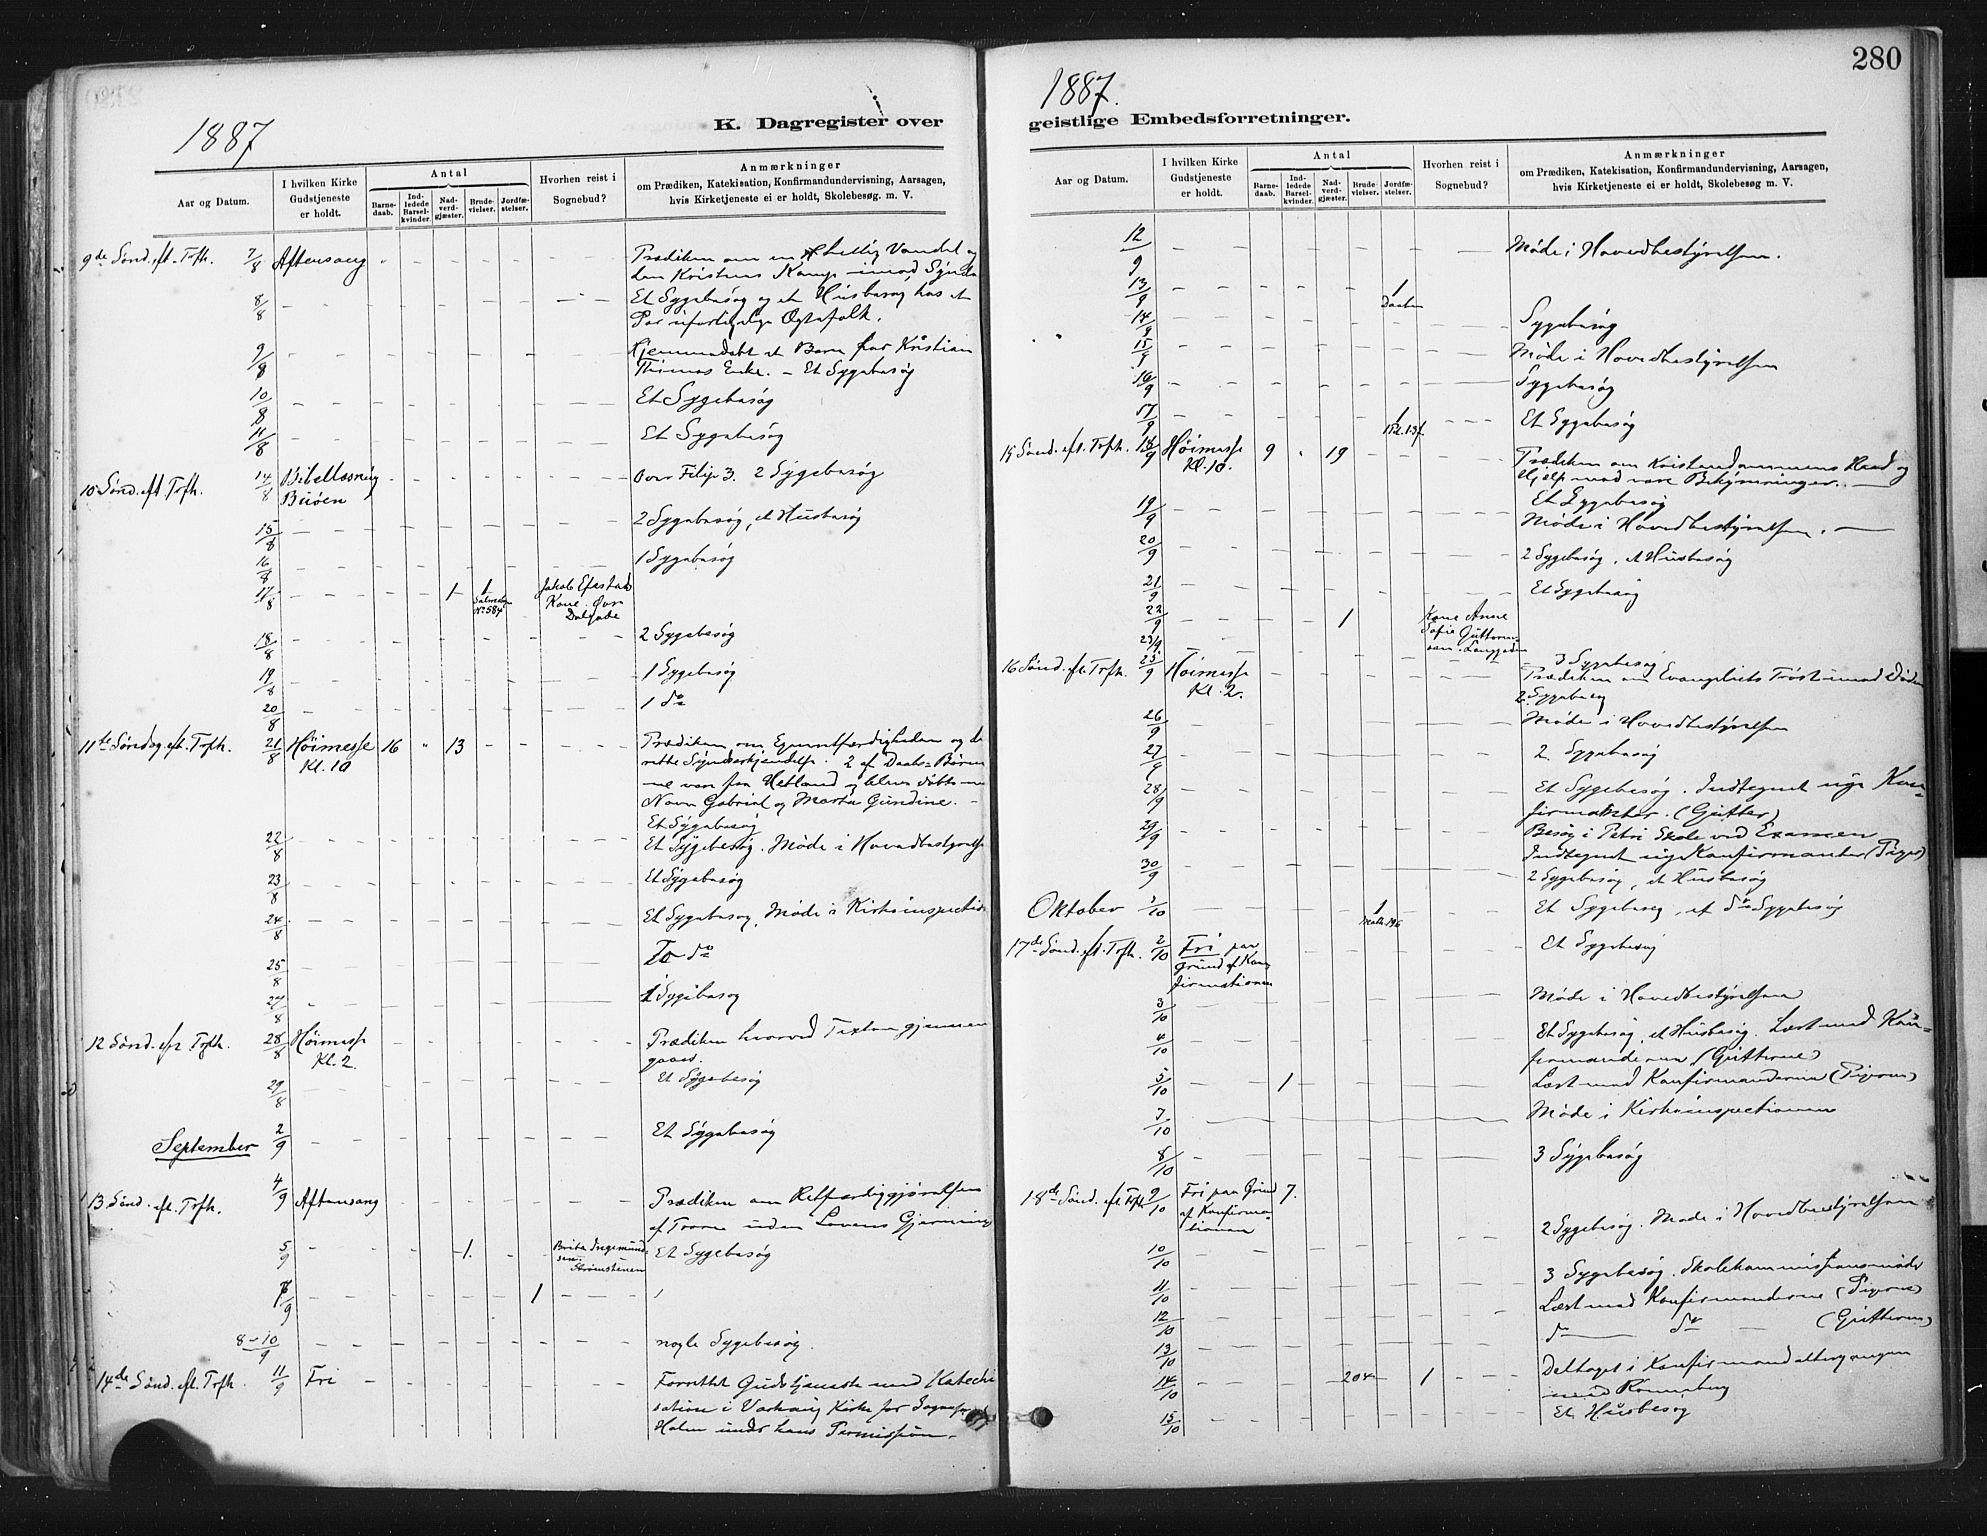 280
1887
K. Dagregister over
Aar og Datum.
I hvilken Kirke
Gudstjeneste
er holdt.
Antal
Barne-
daab.
Ind-
ledede
Barsel-
kvinder.
Nad-
verd-
gjæster.
Brude-
vielser.
Jordfæ-
stelser.
Hvorhen reist i
Sognebud?
Anmærkninger
om Prædiken, Katekisation, Konfirmandundervisning, Aarsagen,
hvis Kirketjeneste ei er holdt, Skolebesøg. m. V.
9de Sønd. eft. Trfh. 7/8 Aftensang Prædiken om en hellig Vandel og
den Kristnes Kamp imod Synden
8/8 Et Sygebesøg og et Husbesøg hos et
Par uforligelige Ægtefolk.
9/8 Hjemmedøbt et Barn for Kristian
Thomas Enke. – Et Sygebesøg
10/8 Et Sygebesøg
11/8 Et Sygebesøg
10 Sønd. eft. Trfh. 14/8 Bibellæsning Over Filip 3. 2 Sygebesøg
Buøen
15/8 2 Sygebesøg, et Husbesøg
16/8 1 Sygebesøg
17/8 1 1 Jakob
No 584 Kone. Øvre
18/8 2 Sygebesøg
19/8 1 Sygebesøg
20/8 1 do
11te Søndag eft. Trfh. 21/8 Høimesse 16 " 13 Prædiken om
Kl. 10 rette Syndserkjendelse. 2 af Daabs-Børne-
ne vare fra Hetland og bleve døbte med
Navn Gabriel og Marta Gundine.
Et Sygebesøg
22/8 Et Sygebesøg. Møde i Hovedbestyrelse
23/8 Et Sygebesøg
24/8 Et Sygebesøg, Møde i Kirkeinspection
25/8 To do
27/8 1 Sygebesøg
12 Sønd. eft. Trfh. 28/8 Høimesse Prædiken hvorved Texten gjennem
Kl. 2. gaaes.
29/8 Et Sygebesøg
September 2/9 Et Sygebesøg
13 Sønd. eft. Trfh. 4/9 Aftensang Prædiken om Retfærdiggjørelsen
af Troen uden Lovens Gjerning
5/9 1. Brita Ingemund-
sen. Et Sygebesøg
Strømstenen
7/9 1
8–10/9 nogle Sygebesøg.
14de Sønd. eft. Trfh. 11/9 Fri Forrettet Gudstjeneste med Katechi
sation i Varhaug Kirke for Sognepræst
Holm under hans Permission.
1887.
geistlige Embedsforretninger.
Aar og Datum.
I hvilken Kirke
Gudstjeneste
er holdt.
Antal
Barne-
daab.
Ind-
ledede
Barsel-
kvinder.
Nad-
verd-
gjæster.
Brude-
vielser.
Jordfæ-
stelser.
Hvorhen reist i
Sognebud?
Anmærkninger
om Prædiken, Katekisation, Konfirmandundervisning, Aarsagen,
hvis Kirketjeneste ei er holdt, Skolebesøg m. V.
12/9 Møde i Hovedbestyrelsen.
13/9 1
14/9 Sygebesøg
15/9 Møde i Hovedbestyrelsen
16/9 Sygebesøg
17/9 1 Et Sygebesøg
15 Sønd. eft. Trfh. 18/9 Høimesse 9 " 19 Prædiken om Kristendommens Raad og
Kl. 10. Hjelp mod vore Bekymringer.
Et Sygebesøg
19/9 Møde i Hovedbestyrelsen.
20/9 2 Sygebesøg, et Husbesøg
21/9 Et Sygebesøg
22/9 1 Kone Anne
Sofie Guttorm-
sen. Langgaden
23/9 3 Sygebesøg
16 Sønd. eft. Trfh. 25/9 Høimesse Prædiken om Evangeliets Trøst imod Døden
Kl. 2. 2 Sygebesøg
26/9 Møde i Hovedbestyrelsen
27/9 2 Sygebesøg
28/9 Et Sygebesøg. Indtegnet nye Kon-
firmanter. (Gutter)
29/9 Besøg i Petri Skole ved Examen
Indtegnet nye Konfirmanter (Piger)
30/9 2 Sygebesøg, et Husbesøg
Oktober 1/10 1 Et Sygebesøg, et do Sygebesøg
17de Sønd. eft. Trfh. 2/10 Fri paa Et Sygebesøg
Grund af Kon-
firmationen
3/10 Møde i Hovedbestyrelsen
4/10 Et Sygebesøg, et Husbesøg. Læst med Kon-
firmanderne (Gutterne)
5/10 1 Læst med Konfirmanderne (Pigerne)
7/10 Møde i Kirkeinspectionen
8/10 3 Sygebesøg
18de Sønd. eft. Trfh. 9/10 Fri paa Grund 7.
af Konfirma-
tionen 2 Sygebesøg. Møde i Hovedbestyrelsen
10/10 3 Sygebesøg. Skolekommissionsmøde
11/10 Læst med Konfirmanderne (Pigerne)
12/10 do do (Gutterne)
13/10 Deltaget i Konfirmandaltergangen
14/10 204 1 med Rønneberg
15/10 Et Husbesøg